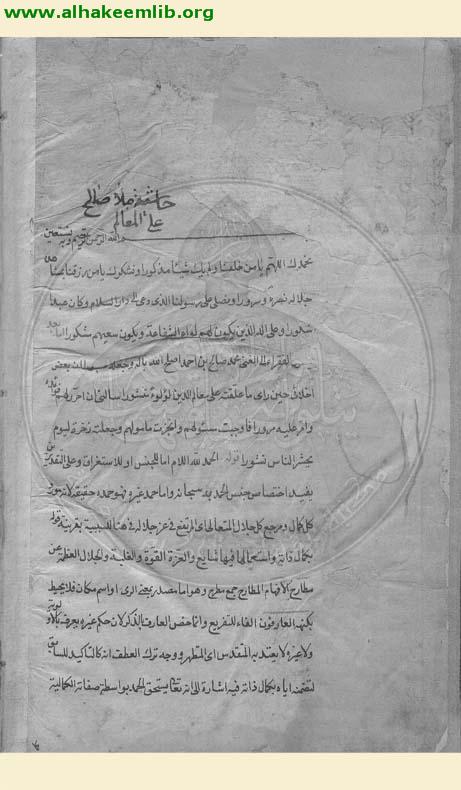 www.alhakeemlib.org
حاشية ملا صالح
على المعالم
بسم الله الرحمن الرحيم وبه نستعين
نحمدك اللهم يا من خلقنا ولم يك شيئا مذكورا ونشكرك يا من رزقنا
جلاله نضرة وسرورا ونصلي على رسولنا الذي دعى الى دار السلام وكان عبدا
شكورا وعلى اله الذين يكون لهم لواء الشفاعة ويكون سعيهم مشكورا
الفقير الى الله الغني محمد صالح بن احمد اصلح الله باله وجعله بعض
اخلائي حين راى ما علقته على معالم الدين لؤلؤا منثورا
واقر عليه مرورا فاوجبت مسئولهم وانجزت مامولهم وجعلته ذخرة ليوم
يحشر الناس نشورا قوله الحمد لله اللام اما للجنس او للاستغراق وعلى
يفيد اختصاص جنس الحمد به سبحانه واما حمد غيره فهو حمده حقيقة لانه
كل كمال ومرجع كل جلال المتعالي اي المرتفع في عز جلاله في هنا للسببية بقرينة قوله
بكمال ذاته واستعمالها فيها شايع والعزة القوة والغلبة والجلال العظمة عن
مطارح الافهام المطارح جمع مطرح وهو اما مصدر بمعنى الرمى او اسم مكان فلا يحيط
بكنهه العارفون الفاء للتفريع وانما خص العارف بالذكر لان حكم غيره يعرف
ولا غيره لا يعتد به المقدس اي المتطهر ووجه ترك العطف انه كالتاكيد للسابق
لتضمنه اياه بكمال ذاته فيه اشارة الى انه تعالى يستحق الحمد بواسطة صفاته الكمالية